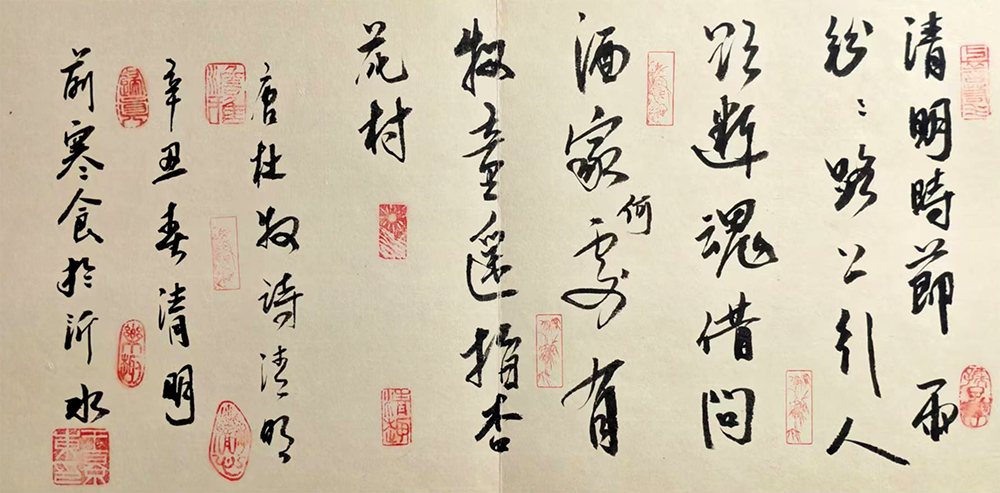 清明時節雨
紛々路上行人
欲斷魂借問
酒家何處有
牧童遥指杏
花村
唐杜牧詩清明
辛丑春清明
前寒食於沂水